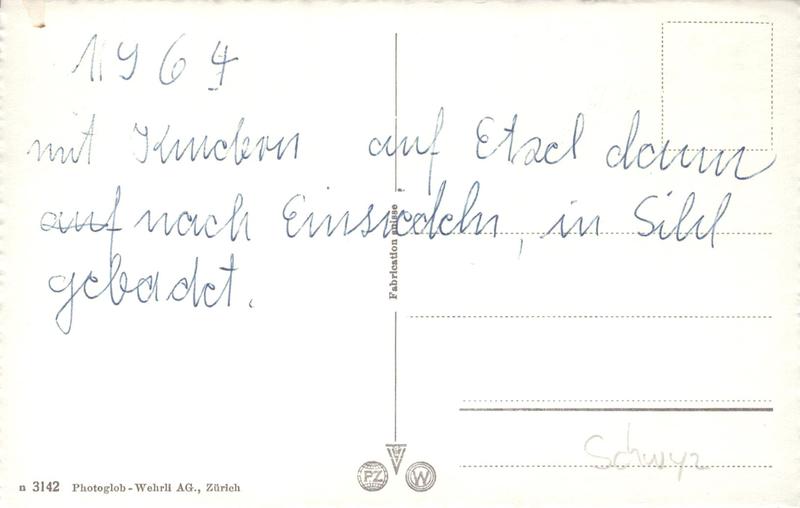 1967
mit Kindern auf Etzel dann
auf nach Einsiedeln, in Sihl
gebadet.
Fabrication suisse
Schwyz
PZ W
n 3142 Photoglob-Wehrli AG., Zürich